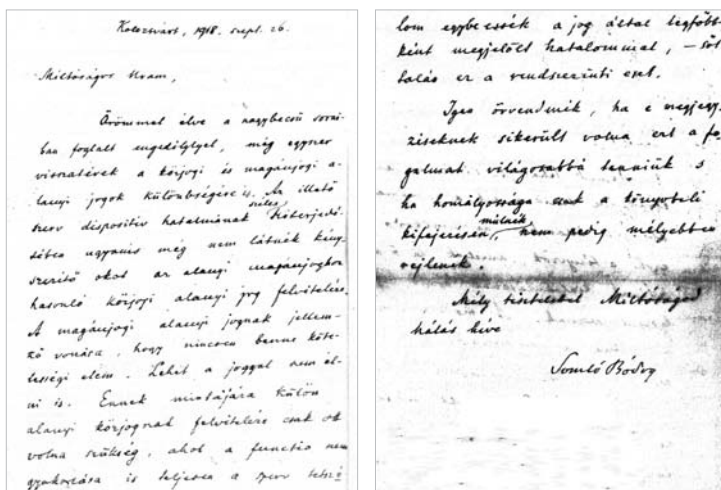 Kolozsvárt, 1918. szept. 26.
Méltóságos Uram,
Örömmel élve a nagybecsű sorai-
ban foglalt engedélylyel, még egyszer
visszatérek a közjogi és magánjogi a-
lanyi jogok különbségére is. Az illető
szerv dispositiv hatalmának széles kiterjedé-
sében ugyanis még nem látnék kény-
szerítő okot az alanyi magánjoghoz
hasonló közjogi alanyi jog felvételére.
A magánjogi alanyi jognak jellem-
ző vonása, hogy nincsen benne köte-
lességi elem. Lehet a joggal nem él-
ni is. Ennek mintájára külön
alanyi közjognak felvételére csak ott
volna szükség, ahol a functio nem
gyakorlása is teljesen a szerv tetszé
lom egybeessék a jog által legfőbb-
ként megjelölt hatalommal, – sőt
ez a rendszerinti eset.
Igen örvendnék, ha e megjegy-
zéseknek sikerült volna ezt a fo-
galmat világosabbá tenniük s
ha homályossága csak a könyvbeli
kifejezésén múlnék, nem pedig mélyebben
rejlenék.
Mély tisztelettel Méltóságod
hálás híve
Somló Bódog